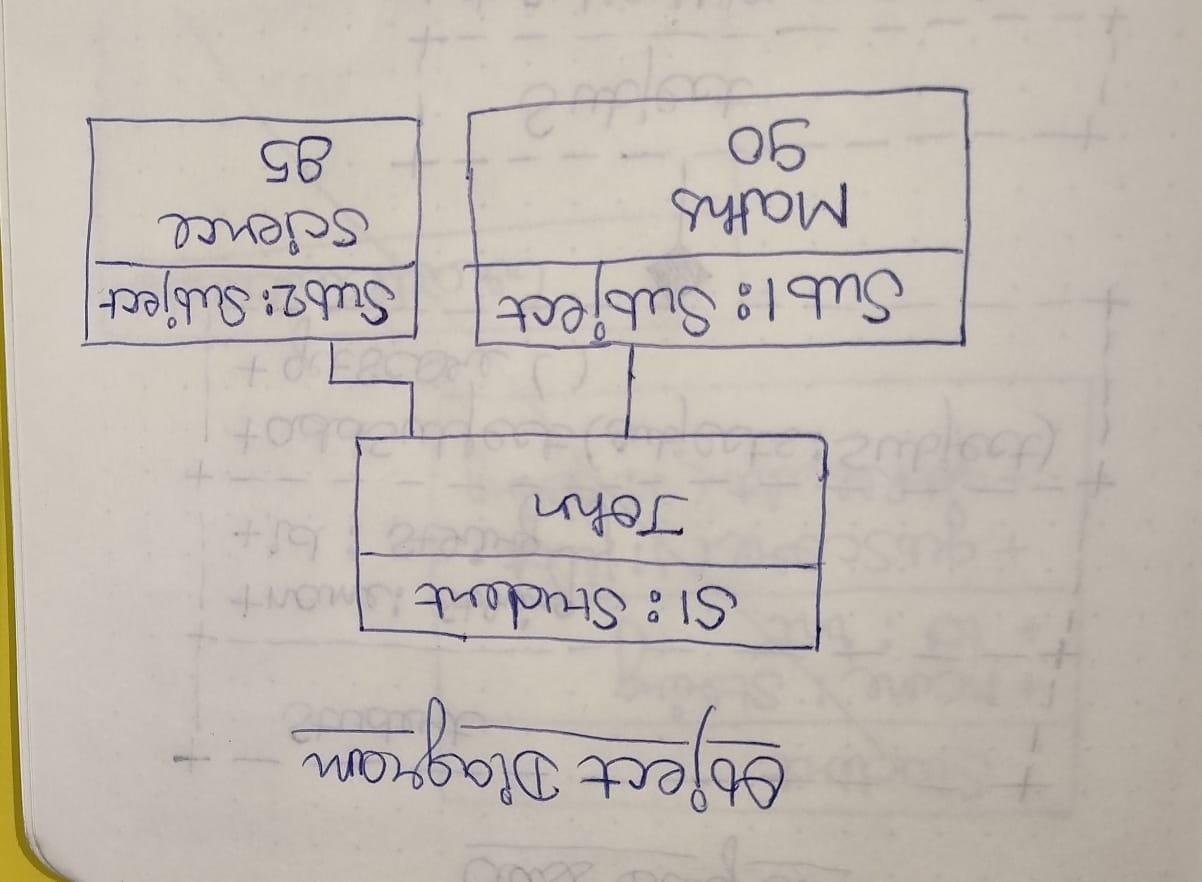 Object Diagram
S1: Student
John
Sub1: Subject
Maths
90
Sub2: Subject
Science
85